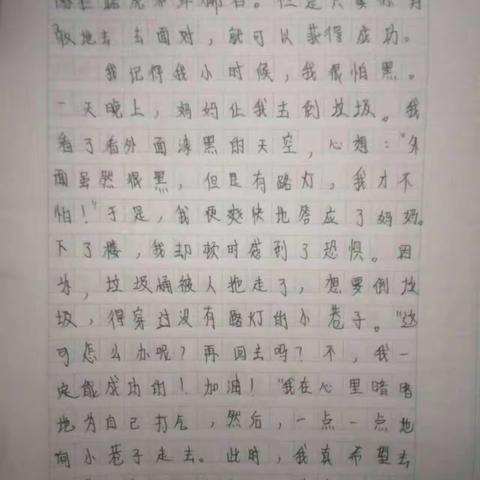 敢地去去面对，就可以获得成功。
我记得我小时候，我很怕黑。
一天晚上，妈妈让我去倒垃圾。我
看了看外面漆黑的天空，心想：“外
面虽然很黑，但是有路灯，我才不
怕！”于是，我便爽快地答应了妈妈。
下了楼，我却顿时感到了恐惧。因
为，垃圾桶被人拖走了，想要倒垃
圾，得穿过没有路灯的小巷子。“这
可怎么办呢？再回去吗？不，我一
定能成功的！加油！”我在心里暗暗
地为自己打气，然后，一点一点地
向小巷子走去。此时，我真希望去